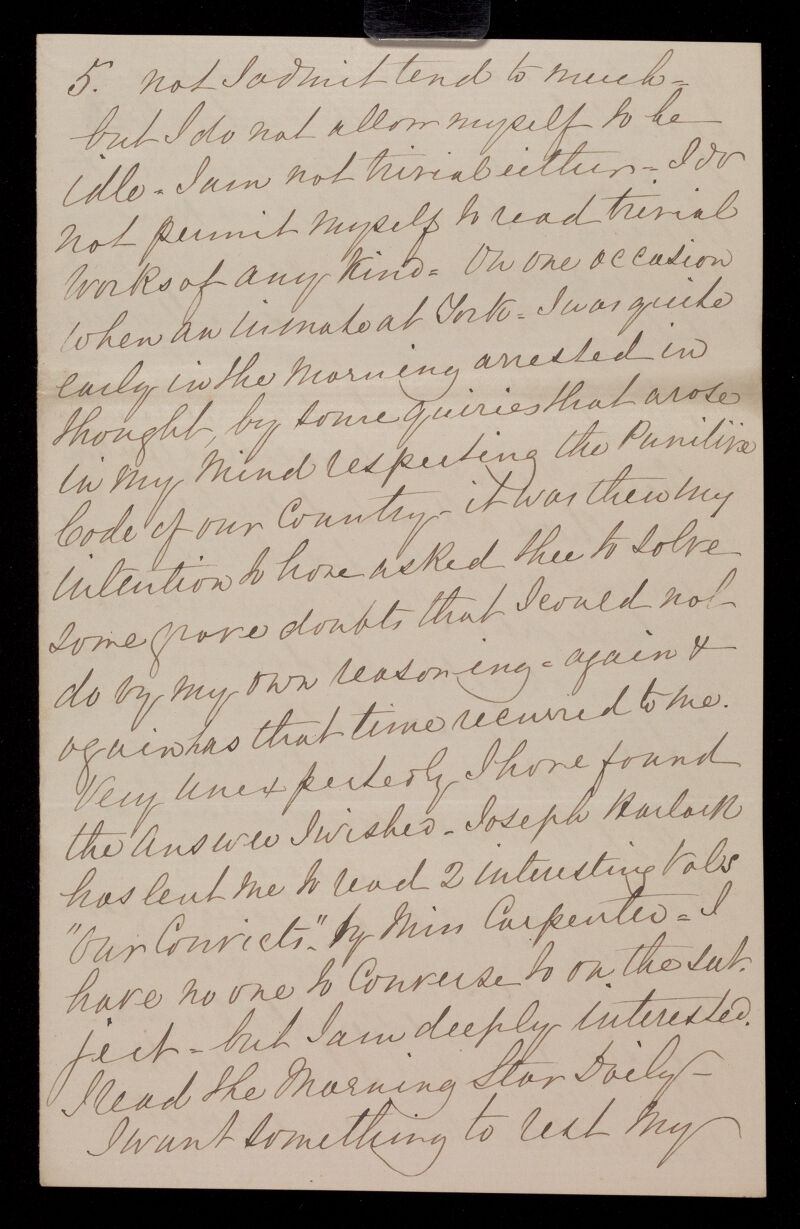 5. not I admit tend to much =
but I do not allow myself to be
idle = I am not trivial either = I do
not permit myself to read trivial
works of any kind = On one occasion
when an inmate at York = I was quite
early in the Morning arrested in
thought, by some quiries that arose
in my Mind respecting the Punitive
Code of our Country - it was then my
intention to have asked thee to solve
some grave doubts that I could not
do by my own reasoning = again &
again has that time recurred to me.
Very unexpectedly I have found
the answer I wished - Joseph
has lent me to read 2 interesting Vols
"Our Convicts" - by Miss Carpenter = I
have no one to Converse to on the sub-
ject = but I am deeply interested.
I read the Morning Star Daily -
I want something to rest My